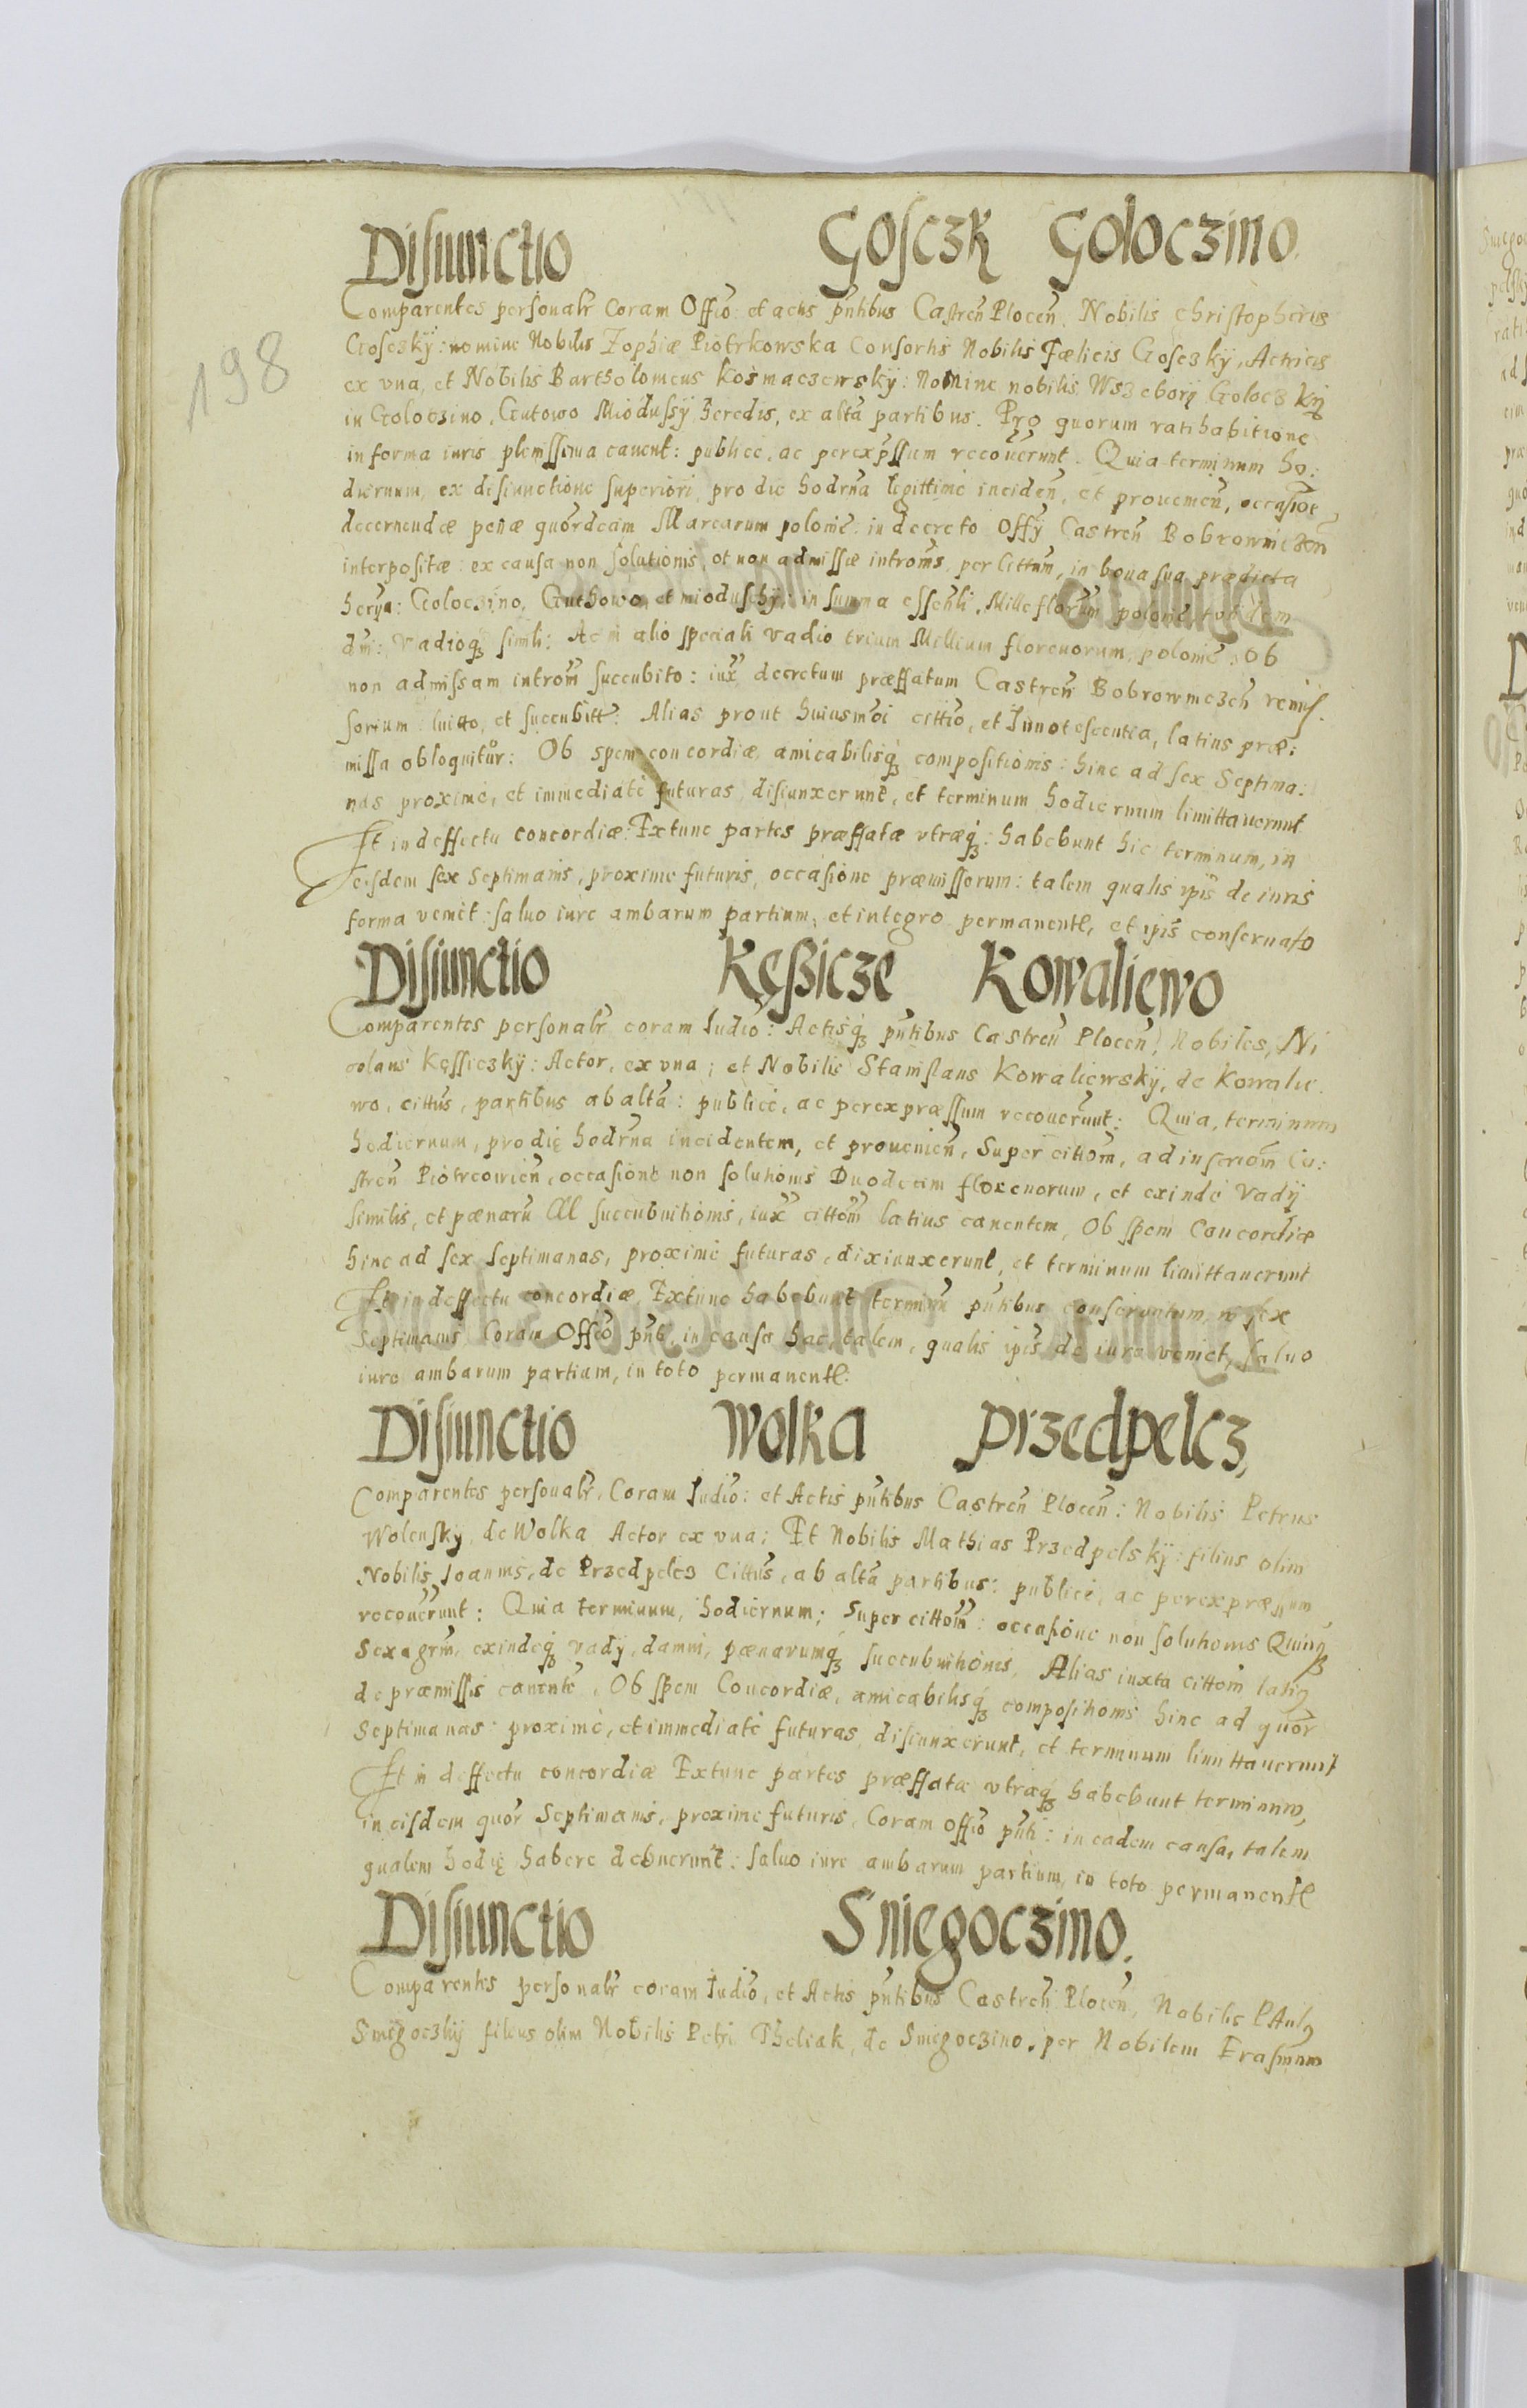 Disiunctio Gosczk Goloczino.
198
Comparentes personalr̃ coram Offĩo et actis pñtibus Castreñ Ploceñ. Nobilis Christopherus
Gosczkÿ: nomine Nobilis Zophiæ Piotrkowska Consortis Nobilis Fælicis Gosczkÿ, Actricis
ex vna, et Nobilis Bartholomeus Kosmaczewskÿ: Nomine nobilis Wszeborÿ Goloczkÿ
in Goloczino, Gutowo Miodussÿ heredis, ex altã partibus. Pro quorum ratihabitione
in forma iuris plenissima cauent: publice, ac per exp̃ssum recouerunt. Quia terminum ho:
diernum, ex disiunctione superiori, pro die hodrña legittimè incideñ, et prouenieñ, occasioẽ
decernendæ penæ quordecim Marcarum polonie: in decreto Offÿ Castreñ Bobrowniczeñ
interpositæ: ex causa non solutionis, et non admissæ intromĩs per littum, in bona sua prædicta
herÿa: Goloczino, Guthowo, et mioduschÿ: in summa essenli, Mille florũm polonie, totidem
dni: Vadioqꝫ simli: Ac in alio speciali vadio trium Millium florenorum, polonie: Ob
non admissam introm̃ succubito: iux̃ decretum præffatum Castreñ Bobrowniczeñ remis
sorium luitto, et succubitt̃: Alias prout huiusmõi cittĩo, et Innotescentia, latius præ:
missa obloquitur̃: Ob spem concordiæ, amicabilisqꝫ compositionis: hinc ad sex Septima:
nas proximè, et immediatè futuras disiunxerunt, et terminum hodiernum limittauerunt
Et in deffectu concordiæ: Extunc partes præffatæ vtræqꝫ: habebunt hic terminum, in
eisdem sex Septimanis, proxime futuris, occasione præmissorum: talem qualis ipĩs de iuris
forma venit: saluo iure ambarum partium, et integro permanente, et ipĩs conseruato
Disiunctio Kęßicze Kowaliewo
Comparentes personalr̃ coram Iudĩo: Actisqꝫ pñtibus Castreñ Ploceñ, Nobiles, Ni
colaus Kęssiczkÿ: Actor, ex vna; et Nobilis Stanislaus Kowaliewskÿ, de Kowalie
wo, cittũs, partibus ab altã: publicè, ac per expræssum recouerunt: Quia, terminum
hodiernum, pro die hodrña incidentem, et prouenieñ, Super cittiom̃, ad instciom̃ Ca:
streñ Piotrcowieñ, occasione non solutionis Duodecim florenorum, et exinde Vadÿ
similis, et pænarũ Al succubuitionis, iux̃ cittom̃ latius canentem, Ob spem Concordiæ
hinc ad sex Septimanas, proximè futuras, dixiunxerunt, et terminum limittauerunt
Et in deffectu concordiæ, Extunc habebunt terminũ pñtibus conseruatum, in sex
Septimanis, Coram Offĩo pñti, in causa hac, talem, qualis ipĩs de iure veniet, saluo
iure ambarum partium, in toto permanente:
Disiunctio Wolka Przedpelcz,
Comparentes personalr̃, Coram Iudĩo: et Actis pñtibus Castreñ Ploceñ: Nobilis Petrus
Wolenskÿ, de Wolka Actor ex vna; Et Nobilis Mathias Przedpelskÿ: filius olim
Nobilis Ioannis, de Przedpelcz Cittũs, ab altã partibus: publicè, ac per expræssum
recouerunt: Quia terminum, hodiernum; Super cittom̃: occasione non solutionis Quinqꝫ
Sexagrm̃, exindeqꝫ vadÿ, damni, pænarumqꝫ succubuitionis, Alias iuxta cittom̃ latius
de præmissis canente, Ob spem Concordiæ, amicabilisqꝫ compositionis hinc ad quor̃
Septimanas: proximè, et immediatè futuras, disiunxerunt, et terminum limittauerunt
Et in deffectu concordiæ Extunc partes præffatæ vtræqꝫ habebunt terminum,
in eisdem quor̃ Septimanis, proxime futuris, Coram Offĩo pñti: in eadem causa, talem
qualem hodie habere debuerunt: saluo iure ambarum partium, in toto permanente
Disiunctio Sniegoczino.
Comparentes personalr̃ coram Iudĩo, et Actis pñtibus Castreñ Ploceñ, Nobilis Paulus
Sniegoczkÿ filius olim Nobilis Petri Theliak, de Sniegoczino, per Nobilem Erasmum